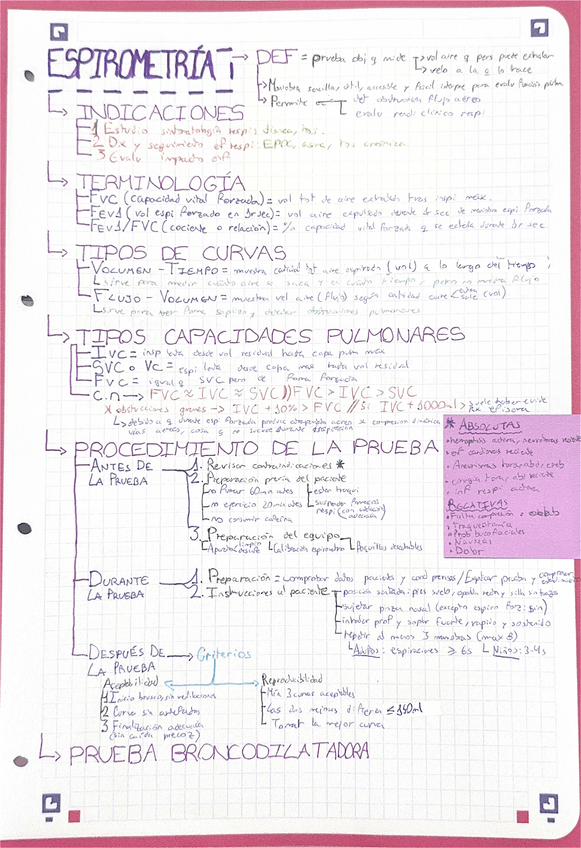 ESPIROMETRÍA → DEF = prueba obj q mide → vol aire q pers puede exhalar
→ velo a la q lo hace
→ Maniobra sencilla, útil, accesible y fácil interpre para evalu función pulm
→ Permite det obstrucción flujo aéreo
evalu rendi clínico respi
→ INDICACIONES
1 Estudio sintomatología respi: disnea, tos.
2 Dx y seguimiento ef respi: EPOC, asma, tos crónica.
3 Evalu impacto enf
→ TERMINOLOGÍA
FVC (capacidad vital forzada) = vol tot de aire exhalado tras inspi máx.
FEV1 (vol espi forzado en 1r sec) = vol aire expulsado durante 1r sec de maniobra espi forzada
FEV1/FVC (cociente o relación) = % capacidad vital forzada q se exhala durante 1r sec.
→ TIPOS DE CURVAS
VOLUMEN - TIEMPO = muestra cantidad tot aire espirado (vol) a lo largo del tiempo;
sirve para medir cuánto aire se saca y en cuánto tiempo, pero no muestra flujo
FLUJO - VOLUMEN = muestra vel aire (flujo) según cantidad aire entra sale (vol)
sirve para ver forma soplido, detectar obstrucciones pulmonares
→ TIPOS CAPACIDADES PULMONARES
IVC = insp lenta desde vol residual hasta capa pulm máx
SVC o VC = espi lenta desde capa máx hasta vol residual
FVC = igual q SVC pero de forma forzada
C.n → FVC ≈ IVC ≈ SVC // FVC > IVC > SVC
* obstrucciones graves → IVC + 10% > FVC // Si IVC + 1000ml >
↳ debido a q durante espi forzada produce atrapamiento aéreo x compresión dinámica
vías aéreas, cosa q no sucede durante inspiración
→ PROCEDIMIENTO DE LA PRUEBA
* ABSOLUTAS
• hemoptisis activa, neumotórax reciente
• ef cardiovas reciente
• Aneurisma torax abd cereb
• cirugía torax, abd reciente
• inf respi activa
RELATIVAS
• Falta comprensión o colab
• Traqueotomía
• Prob bucofaciales
• Nauseas
• Dolor
ANTES DE LA PRUEBA
1. Revisar contraindicaciones *
2. Preparación previa del paciente
no fumar 60 min antes
estar tranqui
no ejercicio 20 min antes
suspender fármacos respi (con antelación adecuada)
no consumir cafeína
3. Preparación del equipo
Aparato limpio
Calibración espirómetro
Boquillas desechables
DURANTE LA PRUEBA
1. Preparación = Comprobar datos paciente y cond previas / Explicar prueba y
2. Instrucciones al paciente → posición sentada: pies suelo, espalda recta y silla sin brazos
sujetar pinza nasal (excepto espiro forz: sin)
inhalar prof y soplar fuerte, rápido y sostenido
repetir al menos 3 maniobras (max 8)
↳ Adultos: espiraciones ≥ 6s ↳ Niños: 3-4s
DESPUÉS DE LA PRUEBA → Criterios
Aceptabilidad
1 Inicio brusco, sin vacilaciones
2 Curva sin artefactos
3 Finalización adecuada
(sin caída precoz)
Reproducibilidad
Mín 3 curvas aceptables
Las dos mejores difieren ≤ 150ml
Tomar la mejor curva
→ PRUEBA BRONCODILATADORA